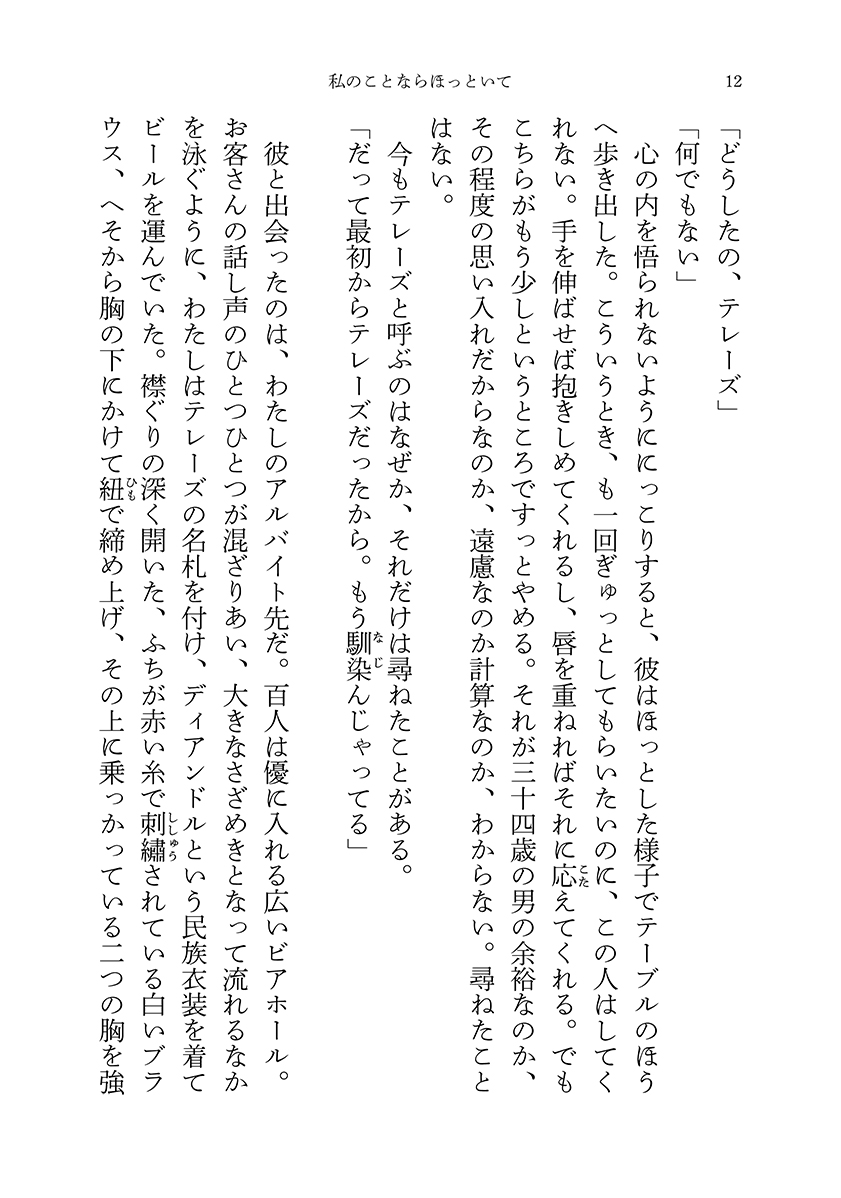 私のことならほっといて
12
「どうしたの、テレーズ」
「何でもない」
　心の内を悟られないようににっこりすると、彼はほっとした様子でテーブルのほう
へ歩き出した。こういうとき、も一回ぎゅっとしてもらいたいのに、この人はしてく
れない。手を伸ばせば抱きしめてくれるし、唇を重ねればそれに応えてくれる。でも
こちらがもう少しというところですっとやめる。それが三十四歳の男の余裕なのか、
その程度の思い入れだからなのか、遠慮なのか計算なのか、わからない。尋ねたこと
はない。
　今もテレーズと呼ぶのはなぜか、それだけは尋ねたことがある。
「だって最初からテレーズだったから。もう馴染んじゃってる」
　彼と出会ったのは、わたしのアルバイト先だ。百人は優に入れる広いビアホール。
お客さんの話し声のひとつひとつが混ざりあい、大きなさざめきとなって流れるなか
を泳ぐように、わたしはテレーズの名札を付け、ディアンドルという民族衣装を着て
ビールを運んでいた。襟ぐりの深く開いた、ふちが赤い糸で刺繡されている白いブラ
ウス、へそから胸の下にかけて紐で締め上げ、その上に乗っかっている二つの胸を強